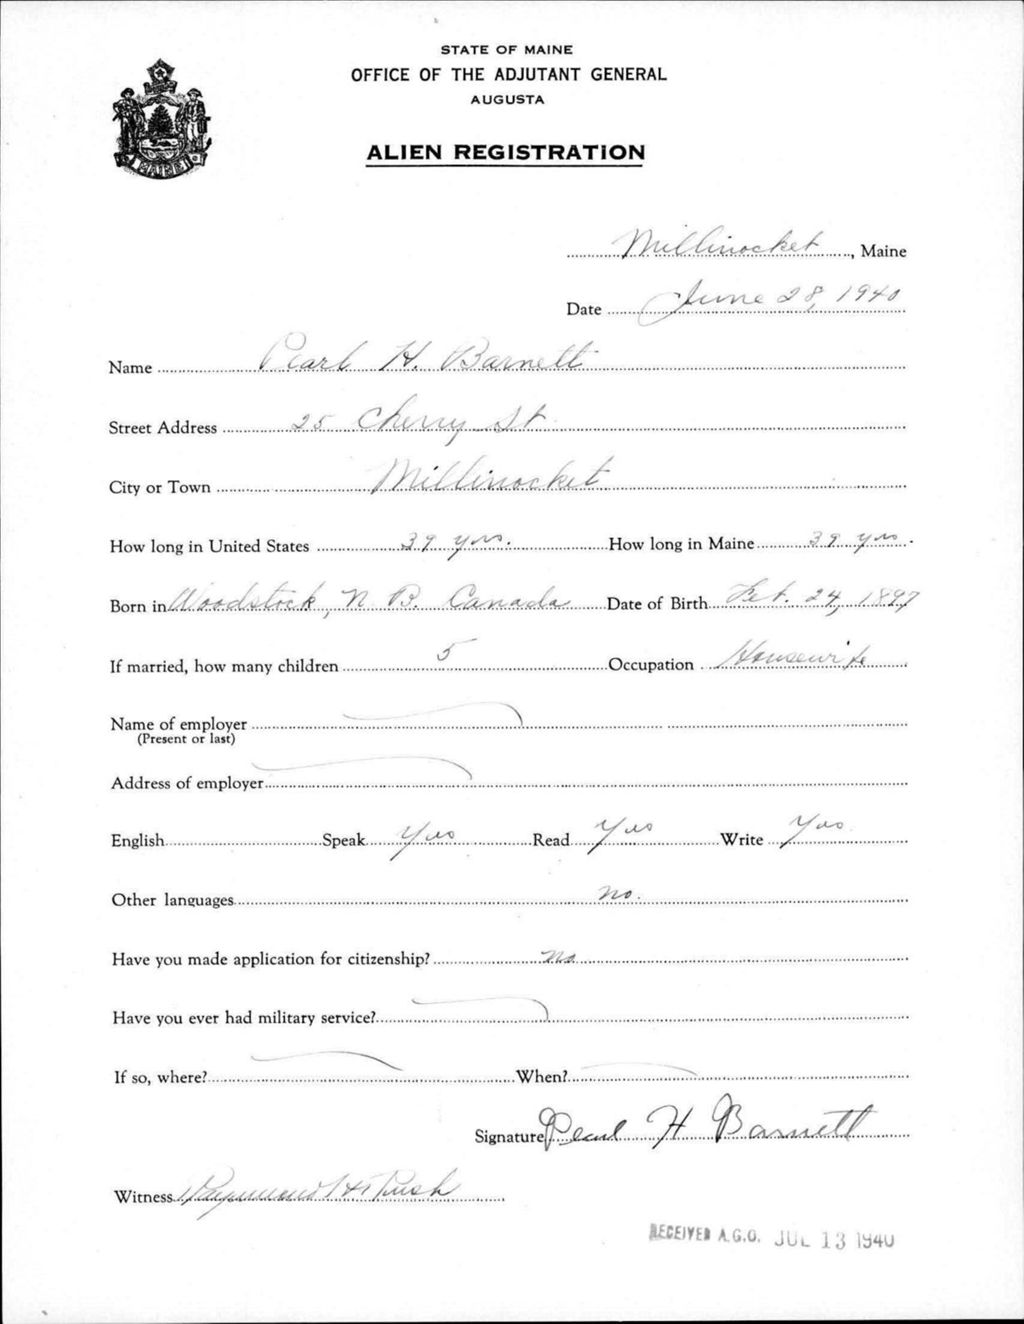 STATE OF MAINE
OFFICE OF THE ADJUTANT GENERAL
AUGUSTA
ALIEN REGISTRATION
MAINE
Millinocket, Maine
Date June 28, 1940
Name Pearl H. Barnett
Street Address 25 Cherry St
City or Town Millinocket
How long in United States 39 yrs. How long in Maine 39 yrs.
Born in Woodstock, N. B. Canada Date of Birth Feb. 24, 1897
If married, how many children 5 Occupation Housewife
Name of employer
(Present or last)
Address of employer
English Speak Yes Read Yes Write Yes
Other languages no.
Have you made application for citizenship? no
Have you ever had military service?
If so, where? When?
Signature Pearl H Barnett
Witness Raymond H Rush
RECEIVED A.G.O. JUL 13 1940